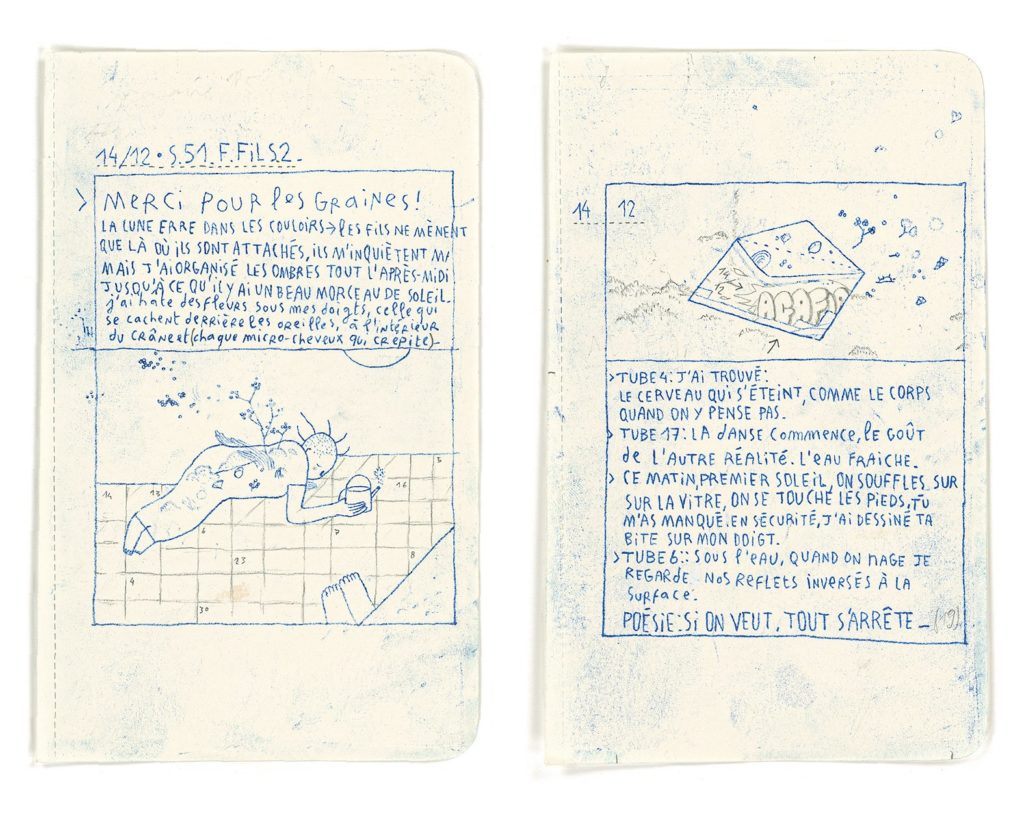 14/12 • S.51. F.FiLS.2.
> MERCi POUR les GRaiNES!
LA LUNE ERRE DANS LES COULOIRS→LES FILS NE MÈNENT
QUE LÀ OÙ iLS SONT ATTACHÉS, iLS M'iNQUiÈTENT M
MAIS J'Ai ORGANISÉ LES OMBRES TOUT L'APRÈS-MiDi
JUSQU'À CE QU'iL Y Ai UN BEAU MORCEAU DE SOLEIL.
j'ai hate des fleurs sous mes doigts, celle qui
se cachent derrière les oreilles, à l'intérieur
du CRÂNE et (chaque micro-cheveux qui CREPITE)-
14
13
5
16
6
7
8
23
4
30
14 12
14
12
ACAFA
>TUBE 4: J'Ai TROUVÉ:
LE CERVEAU QUI S'ÉTEINT, COMME LE CORPS
QUAND ON Y PENSE PAS.
> TUBE 17: LA dANSE Commence, le GOÛT
de L'AUTRE RÉALITÉ. L'eau FRAICHE.
> CE MATIN, PREMIER SOLEIL, ON SOUFFLES SUR
SUR LA VITRE, ON SE TOUCHE LES PIEDS, TU
M'AS MANQUÉ. EN SÉCURITÉ, J'Ai DESSINÉ TA
BITE SUR MON DOIGT.
>TUBE 6: SOUS l'EAU, QUAND ON NAGE JE
REGARDE NOS REFLETS INVERSÉS À LA
SURFACE.
POÉSIE: SI ON VEUT, TOUT S'ARRÊTE _ (19)